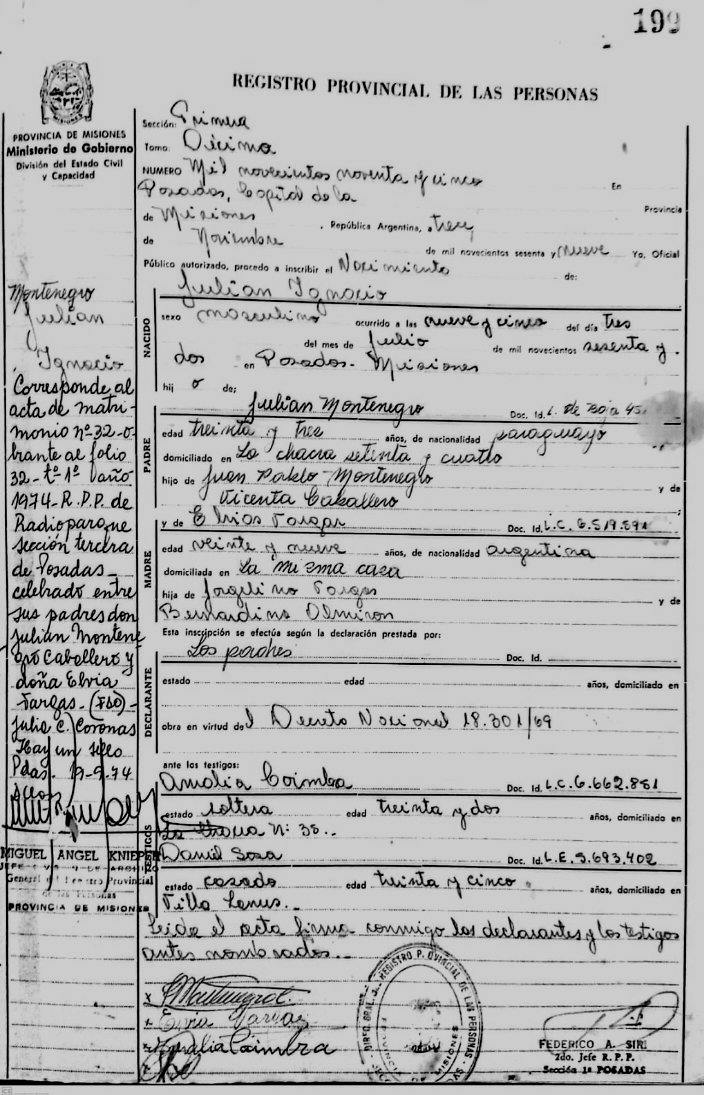 199
REGISTRO PROVINCIAL DE LAS PERSONAS
PROVINCIA DE MISIONES
Ministerio de Gobierno
División del Estado Civil
y Capacidad
Sección: Primera
Tomo: Décimo
NUMERO Mil novecientos noventa y cinco
En
Posadas, Capital de la
Provincia
de Misiones, República Argentina, trece
de Noviembre de mil novecientos sesenta y nueve Yo, Oficial
Público autorizado, procedo a inscribir el Nacimiento de:
Julian Ignacio
NACIDO
sexo masculino ocurrido a las nueve y cinco del día tres
del mes de Julio de mil novecientos sesenta y
dos en Posadas- Misiones
hij o de:
PADRE
Julian Montenegro Doc. Id.
edad treinta y tres años, de nacionalidad paraguayo
domiciliado en La chacra setenta y cuatro
hijo de Juan Pablo Montenegro y de
Vicenta Caballero
MADRE
y de Elvia Vargas Doc. Id. L.C. 6.519.591
edad veinte y nueve años, de nacionalidad argentina
domiciliada en La misma casa
hija de Jorgelino Vargas y de
Bernardina Olmiron
DECLARANTE
Esta inscripción se efectúa según la declaración prestada por:
Los padres Doc. Id.
estado edad años, domiciliado en
obra en virtud del Decreto Nacional 18.301/69
TESTIGOS
ante los testigos:
Amalia Coimbra Doc. Id. L.C. 6.662.881
estado soltera edad treinta y dos años, domiciliado en
N: 38..
Daniel Sosa Doc. Id. L.E. 5.693.402
estado casado edad treinta y cinco años, domiciliado en
Villa Lanus.-
Leida el acta firma conmigo los declarantes y los testigos
antes nombrados..
Montenegro
Julian
Ignacio
Corresponde al
acta de matri-
monio nº-32-o-
brante al folio
32-tº1º año
1974-R.P.P. de
Radioparque
sección tercera
de Posadas-
celebrado entre
sus padres don
Julian Montene
gro Caballero y
doña Elvia
Vargas-(FDO)-
Julia C. Coronas
Hay un sello
Pdas. 17-9-74
MIGUEL ANGEL KNIEPER
JEFE DE ARCHIVO
General del Registro Provincial
de las Personas
PROVINCIA DE MISIONES
Elvia Vargas
Amalia Coimbra
DIREC. GRAL. REGISTRO PROVINCIAL DE LAS PERSONAS
PROVINCIA DE MISIONES
FEDERICO A. SIRI
2do. Jefe R. P. P.
Sección 1ª POSADAS